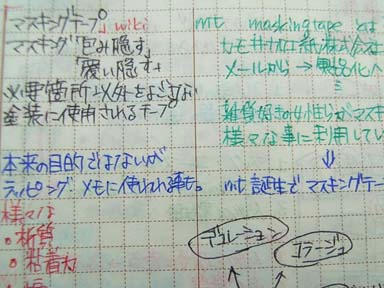 マスキングテープ」wiki
マスキング「包み隠す」
「覆い隠す」
必要箇所以外をよごさない
塗装に使用されるテープ
本来の目的ではないが
ラッピング メモに使われる事も。
様々な
・材質
・粘着力
・幅
mt maskingtape とは
カモ井加工紙株式会社
メールから → 製品化へ
雑貨好きの女性らがマスキ
様々な事に利用してい
⇓
mt 誕生で マスキングテー
デコレーション
コラージュ